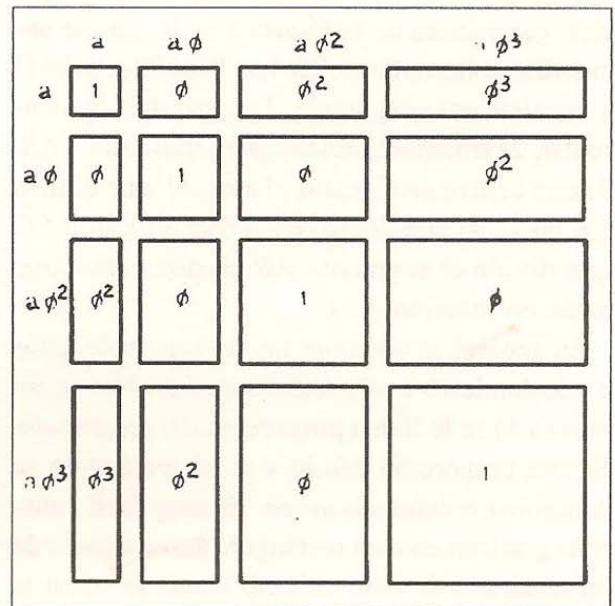 a aϕ aϕ² ϕ³
a 1 ϕ ϕ² ϕ³
aϕ ϕ 1 ϕ ϕ²
aϕ² ϕ² ϕ 1 ϕ
aϕ³ ϕ³ ϕ² ϕ 1